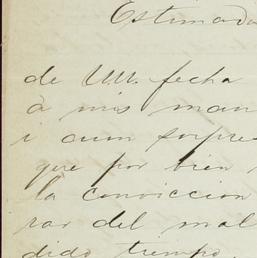 Estimado
de UU. fecha
à mis man
i aum sorpre
que por bien
la conviccion
rar del mal
dido tiempo,